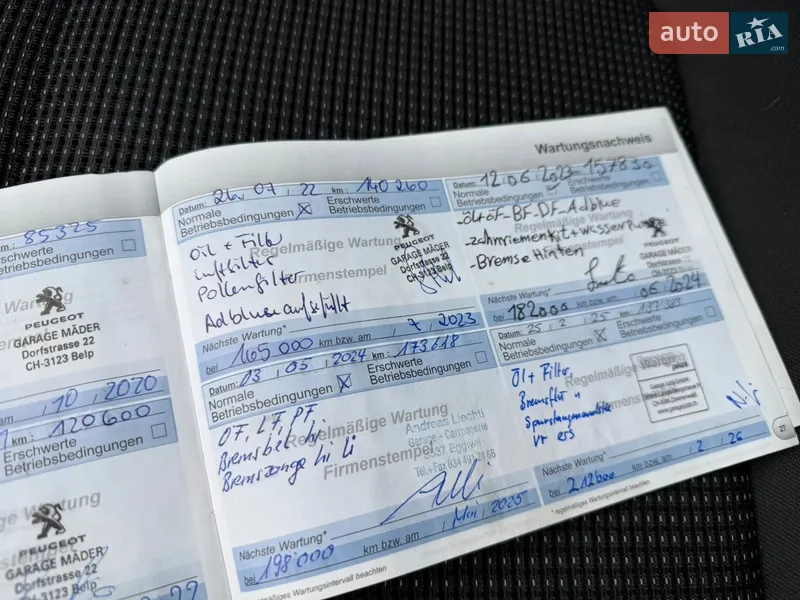 auto RIA .com
Wartungsnachweis
85325
Erschwerte
Betriebsbedingungen
PEUGEOT
GARAGE MÄDER
Dorfstrasse 22
CH-3123 Belp
am / 10 / 2020
km: 120600
Erschwerte
Betriebsbedingungen
Regelmäßige Wartung
PEUGEOT
GARAGE MÄDER
Dorfstrasse 22
CH-3123 Belp
Datum: 26 / 07 / 22 km: 140 260
Normale
Betriebsbedingungen
Erschwerte
Betriebsbedingungen
Regelmäßige Wartung
Firmenstempel
Öil + Filter
Luftfilter
Pollenfilter
Adblue aufgefüllt
PEUGEOT
GARAGE MÄDER
Dorfstrasse 22
CH-3123 Belp
Nächste Wartung*
bei 165 000 km bzw. am / 7 / 2023
Datum: 03 / 05 / 2024 km: 173618
Normale
Betriebsbedingungen
Erschwerte
Betriebsbedingungen
Regelmäßige Wartung
Firmenstempel
OF, LF, PF
Bremsbel hi
Bremszange hi Li
Andreas Liechti
Garage + Carrosserie
3537 Eggiwil
Nächste Wartung*
bei 198 000 km bzw. am Mai / 2025
* regelmäßiges Wartungsintervall beachten
Datum: 12/06/2023 157830
Normale
Betriebsbedingungen
Erschwerte
Betriebsbedingungen
Regelmäßige Wartung
-Öl+ÖF-BF-DF-Adblue
-Zahnriemenkit+Wasserpumpe
-Bremse Hinten
PEUGEOT
GARAGE MÄDER
Nächste Wartung*
bei 182000 km bzw. am 06 2024
Datum: 25 / 2 / 25
Normale
Betriebsbedingungen
Erschwerte
Betriebsbedingungen
Regelmäßige Wartung
Firmenstempel
Öl + Filter
plus
bei 212600 km bzw. am / 2 / 26
* regelmäßiges Wartungsintervall beachten
27